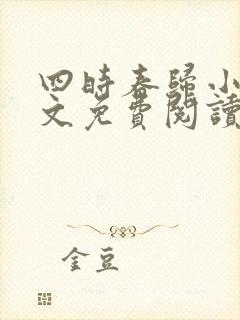 四時春歸小
文免費閱讀
金豆